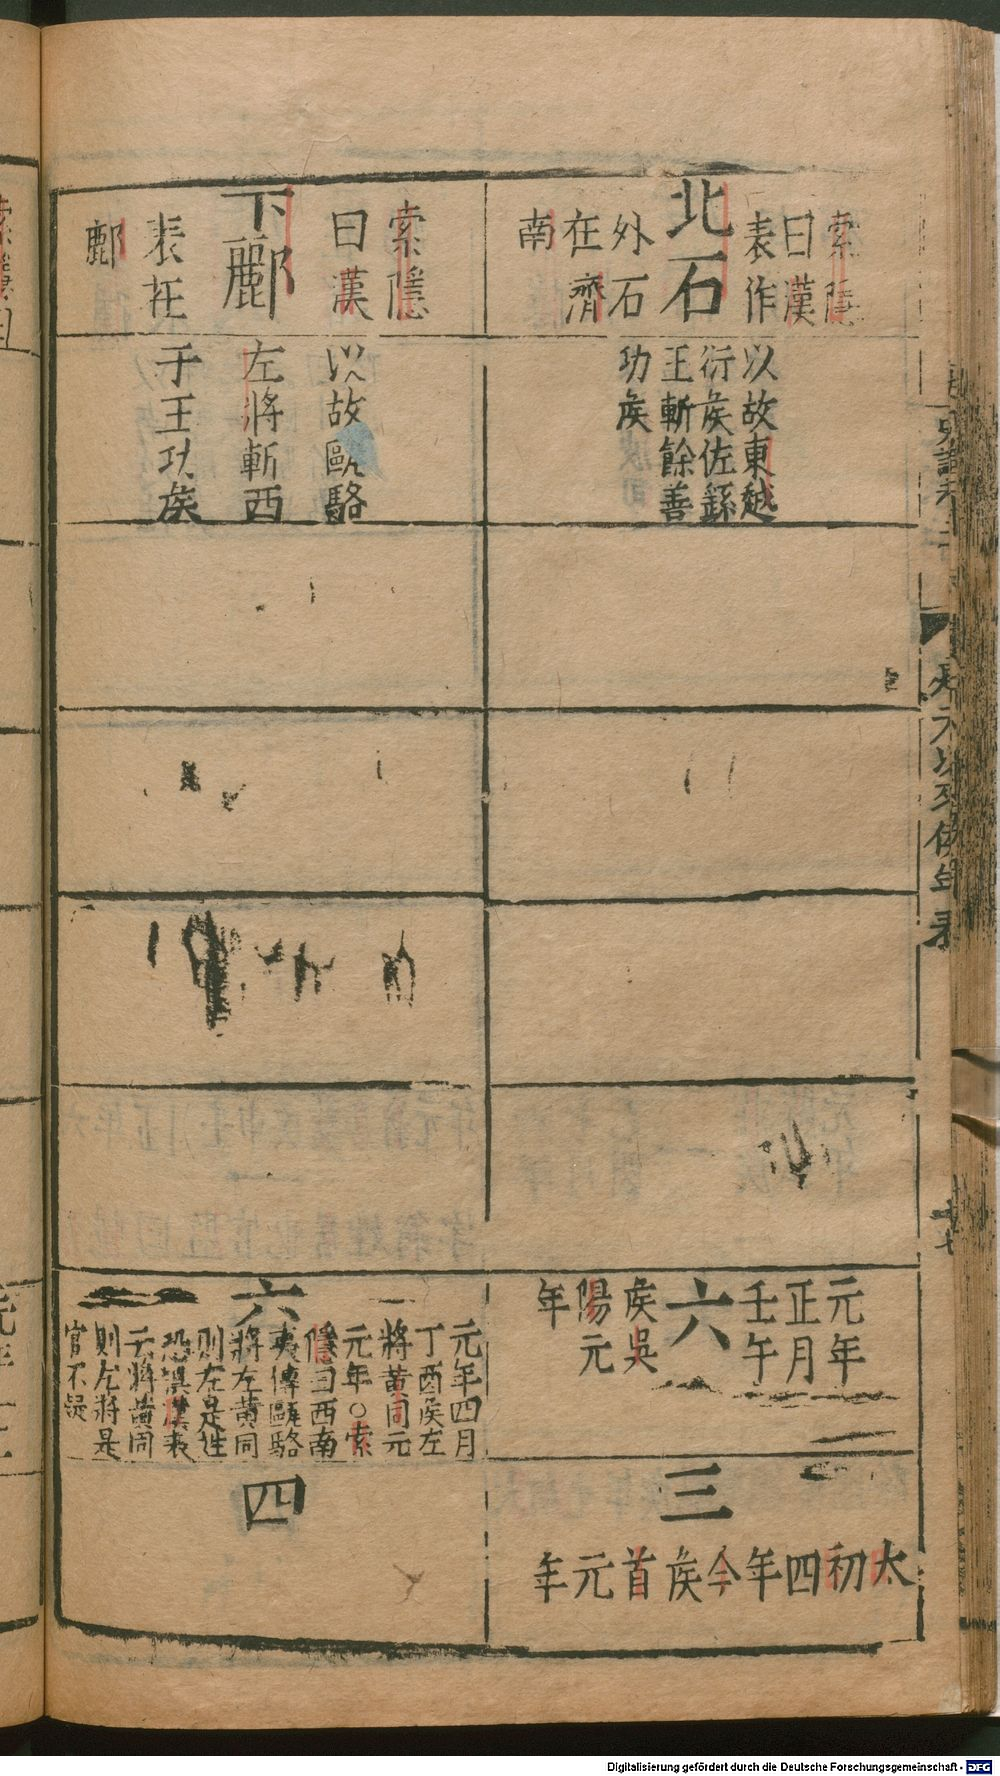 索隱
曰漢
表作
北石
外石
在濟
南
以故東越
衍侯佐繇
王斬餘善
功侯
元年
正月
壬午
六
侯吳
陽元
年
三
太初四年今侯首元年
索隱
曰漢
下酈
表在
酈
以故甌駱
左將斬西
于王功侯
元年四月
丁酉侯左
將黃同元
元年○索
隱曰西南
夷傳甌駱
六
將左黃同
則左是姓
恐誤漢表
云將黃同
則左將是
官不疑
四
Digitalisierung gefördert durch die Deutsche Forschungsgemeinschaft - DFG